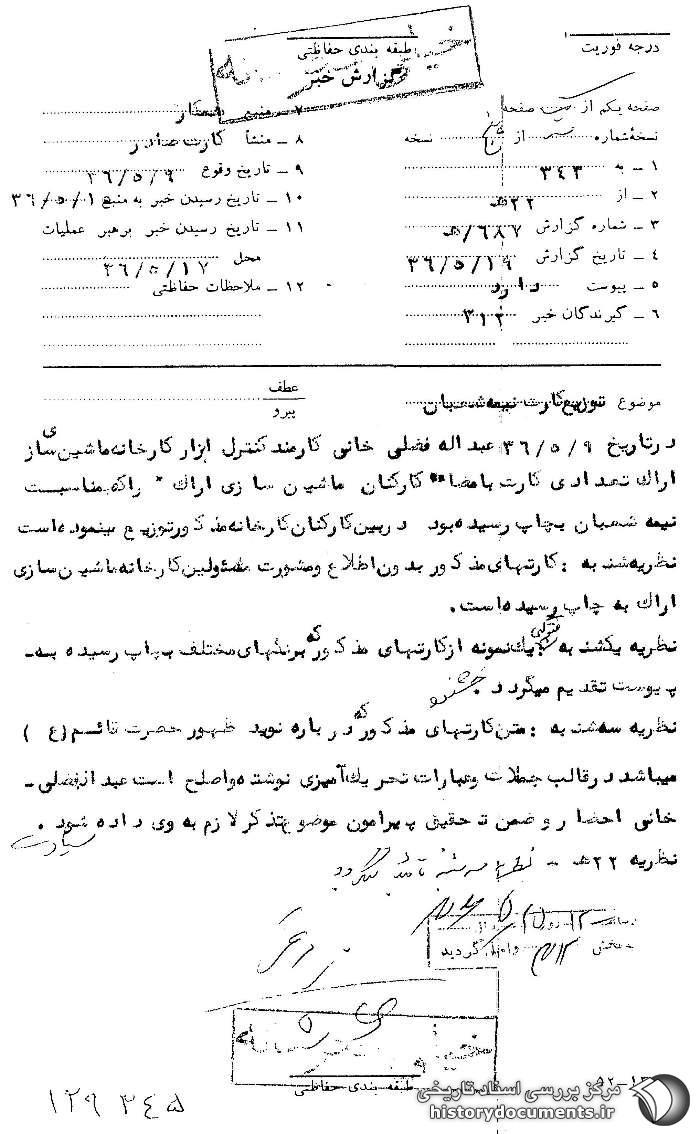 درجه فوریت
طبقه بندی حفاظتی
خیلی محرمانه
گزارش خبر
صفحه یکم از یک صفحه
نسخهٔ شماره از نسخه
۱ – به ۳۴۳
۲ – از ۲۲ ه‍
۳ – شماره گزارش ۶۸۷/ه‍
۴ – تاریخ گزارش ۳۶/۵/۱۹
۵ – پیوست دارد
۶ – گیرندگان خبر ۳۱۲
۷ – منبع همکار
۸ – منشأ کارت صادر
۹ – تاریخ وقوع ۳۶/۵/۹
۱۰ – تاریخ رسیدن خبر به منبع ۳۶/۵/۱
۱۱ – تاریخ رسیدن خبر برهبر عملیات
محل ۳۶/۵/۱۷
۱۲ – ملاحظات حفاظتی
موضوع توزیع کارت نیمه شعبان
عطف
پیرو
در تاریخ ۳۶/۵/۹ عبداله فضلی خانی کارمند کنترل ابزار کارخانه ماشین سازی
اراك تعدادی کارت بامضا " کارکنان ماشین سازی اراك " راکه بمناسبت
نیمه شعبان بچاپ رسیده بود در بین کارکنان کارخانه مذکور توزیع مینموده است
نظریه شنبه : کارتهای مذکور بدون اطلاع و مشورت مسئولین کارخانه ماشین سازی
اراك به چاپ رسیده است.
نظریه یکشنبه : یك نمونه از کارتهای مذکور که برنگهای مختلف بچاپ رسیده به –
پیوست تقدیم میگردد
نظریه سه شنبه : متن کارتهای مذکور که در باره نوید ظهور حضرت قائم (ع )
میباشد در قالب جملات و عبارات تحریك آمیزی نوشته و اصلح است عبداله فضلی –
خانی احضار و ضمن تحقیق پیرامون موضوع تذکر لازم به وی داده شود .
نظریه ۲۲ ه‍ – نظریه سه شنبه تائید میگردد
واصل گردید
خیلی محرمانه
طبقه بندی حفاظتی
۱۲۹ ۳۴۵
مرکز بررسی اسناد تاریخی
historydocuments.ir